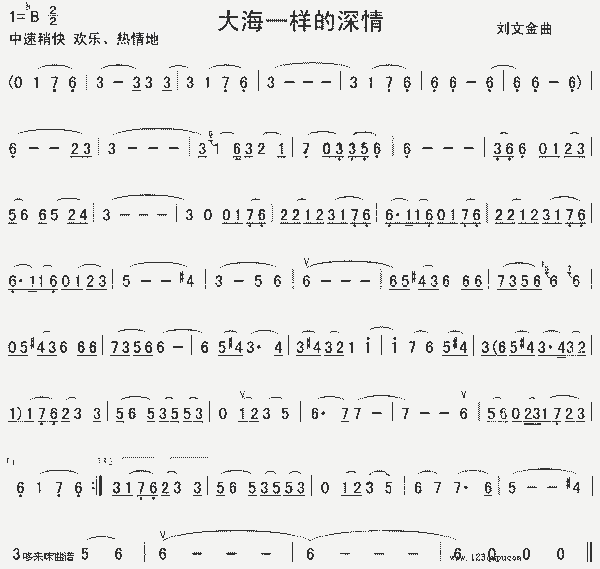 大海一样的深情
1=♮B 2/2
刘文金曲
中速稍快 欢乐、热情地
(0 1 7 6 | 3 - 3 3 3 | 3 1 7 6 | 3 - - - | 3 1 7 6 | 6 6 - 6 | 6 6 - 6) |
6 - - 2 3 | 3 - - - | 3 1 6 3 2 1 | 7 0 3 3 5 6 | 6 - - - | 3 6 6 0 1 2 3 |
5 6 6 5 2 4 | 3 - - - | 3 0 0 1 7 6 | 2 2 1 2 3 1 7 6 | 6· 1 1 6 0 1 7 6 | 2 2 1 2 3 1 7 6 |
6· 1 1 6 0 1 2 3 | 5 - - #4 | 3 - 5 6 | 6 - - - | 6 5 #4 3 6 6 6 | 7 3 5 6 6 6 |
0 5 #4 3 6 6 6 | 7 3 5 6 6 - | 6 5 #4 3· 4 | 3 #4 3 2 1 i | i 7 6 5 #4 | 3 (6 5 #4 3· 4 3 2 |
1) 1 7 6 2 3 3 | 5 6 5 3 5 5 3 | 0 1 2 3 5 | 6· 7 7 - | 7 - - 6 | 5 6 0 2 3 1 7 2 3 |
6 1 7 6 :‖ 3 1 7 6 2 3 3 | 5 6 5 3 5 5 3 | 0 1 2 3 5 | 6 7 7· 6 | 5 - - #4 |
3 - 5 6 | 6 - - - | 6 - - - | 6 0 0 0 ‖
哆来咪曲谱